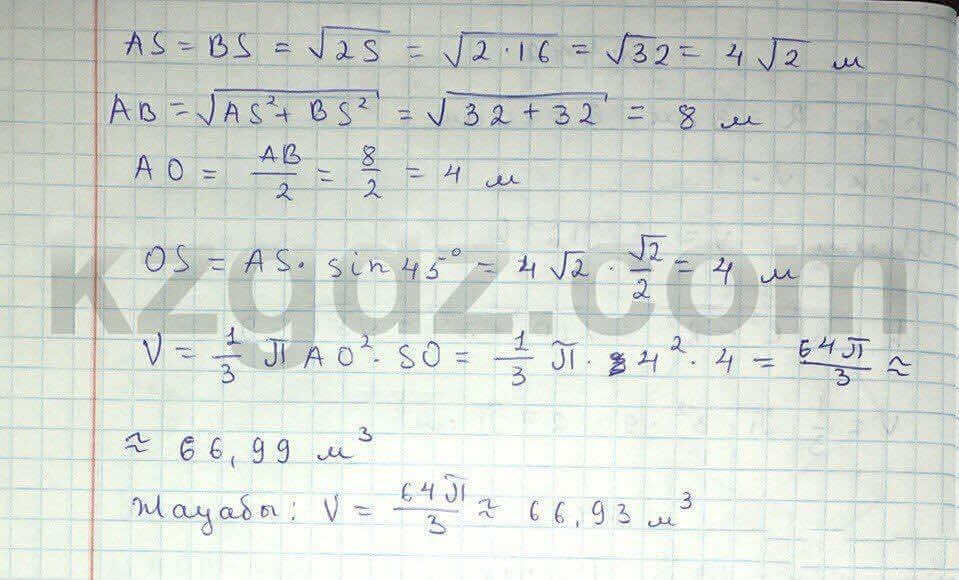 AS = BS = √2S = √2·16 = √32 = 4√2 м
AB = √AS²+ BS² = √32 + 32 = 8 м
AO = AB/2 = 8/2 = 4 м
OS = AS· sin 45° = 4√2 · √2/2 = 4 м
V = 1/3 П AO²· SO = 1/3 П· 4² · 4 = 64П/3 ≈
≈ 66,99 м³
Жауабы: V = 64П/3 ≈ 66,93 м³
kzgdz.com